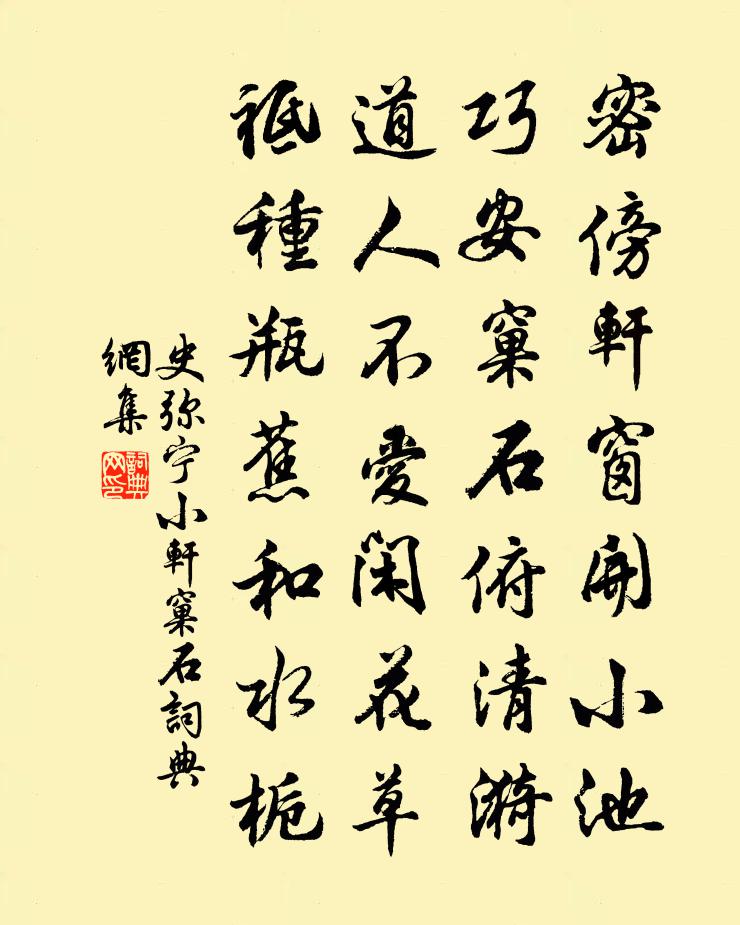 密傍軒窗開小池
巧安窠石俯清漪
道人不愛閑花草
祗種瓶蕉和水栀
史弥宁小軒窠石詞典
網集
詞典網印